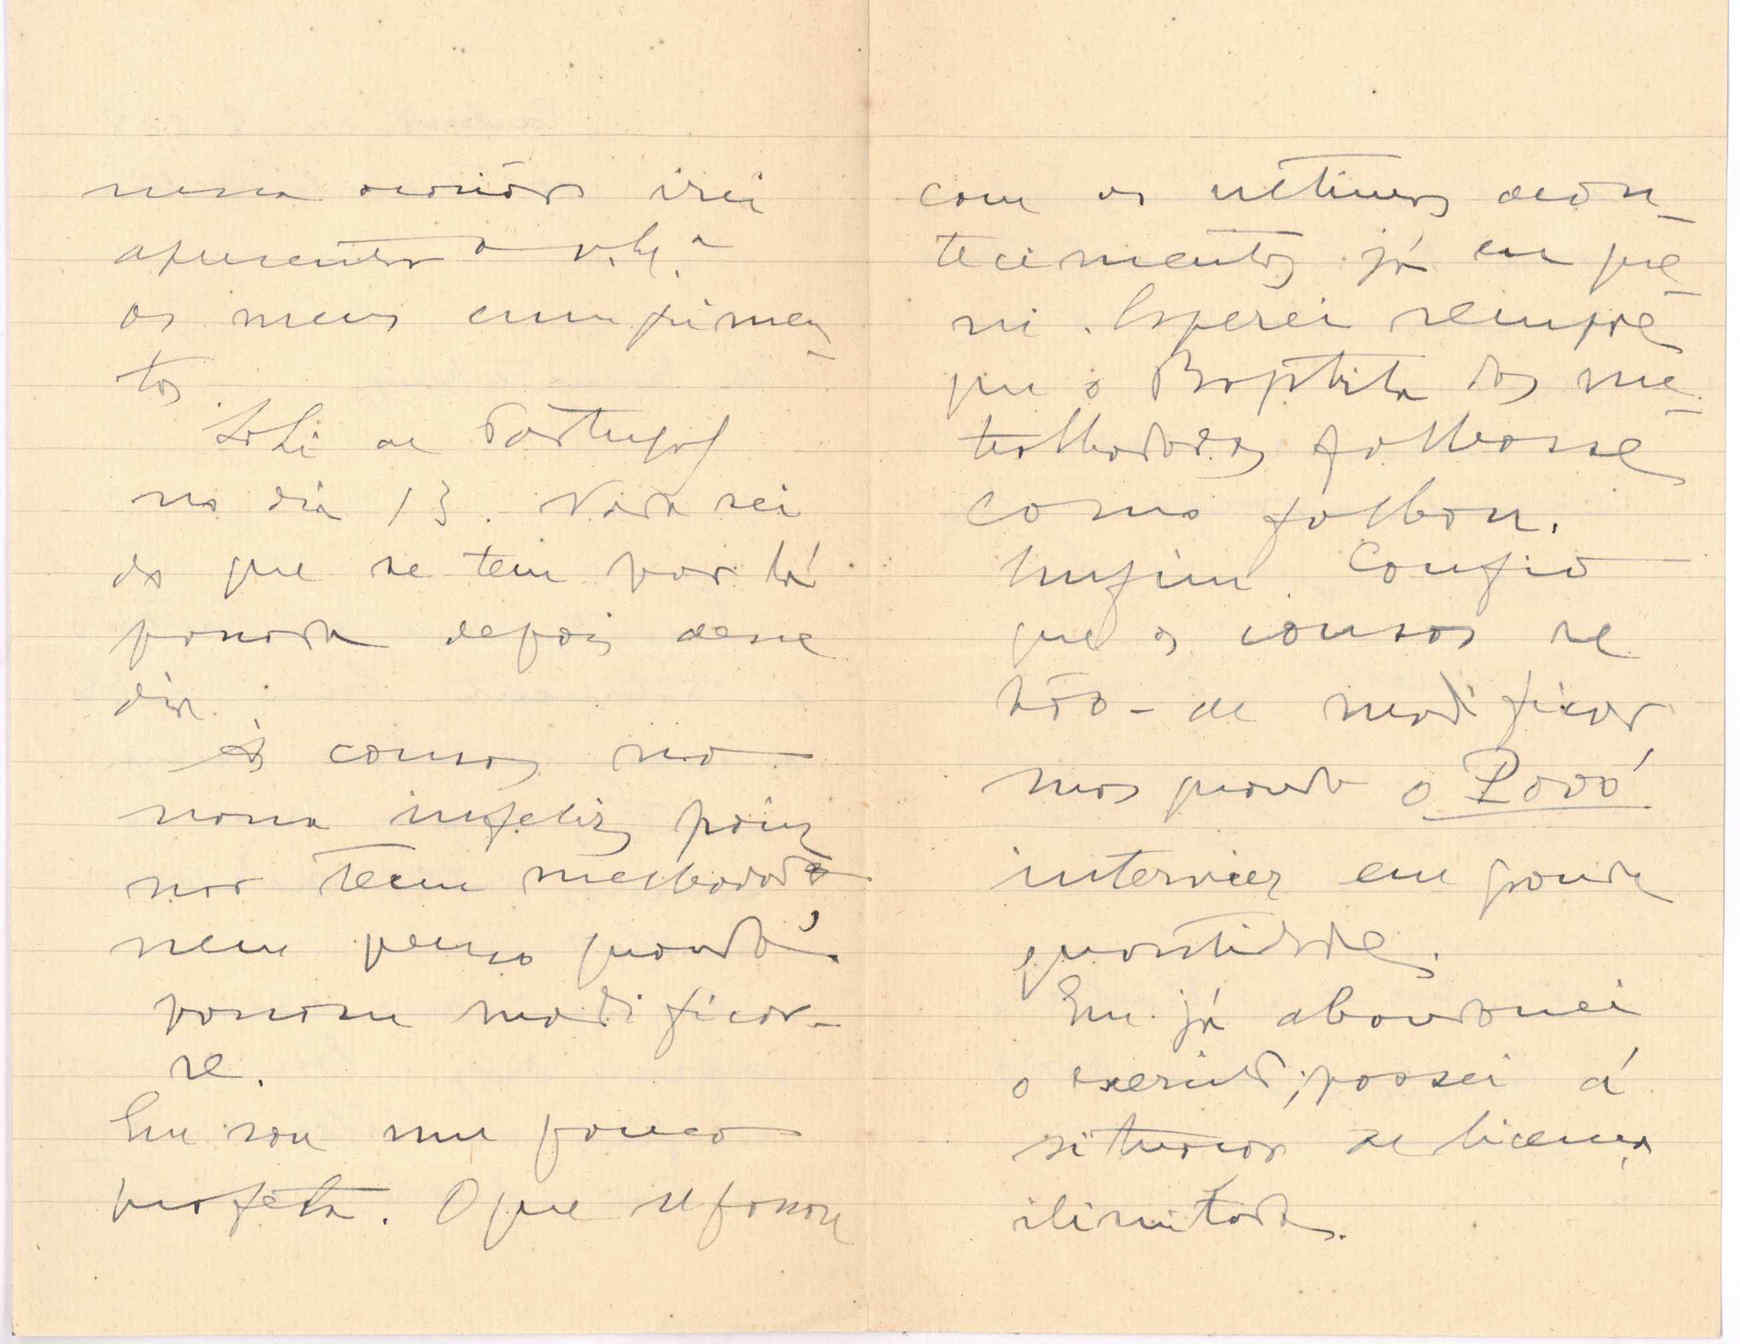 nessa occasião irei
apresentar a V. Ex.ª
os meus cumprimen-
tos
Sahi de Portugal
no dia 13. Nada sei
do que se tem por lá
passado depois desse
dia.
As cousas no
nosso infeliz paiz
não teem melhorado
nem penso quando
possam modificar-
se.
Eu sou um pouco
profeta. O que se passou
com os ultimos acon-
tecimentos já eu pre-
vi. Esperei sempre
que o Baptista das me-
tralhadoras falhasse
como falhou.
Emfim. Confio
que as cousas se
hão-de modificar
mas quando o Povo
intervier em grande
quantidade.
Eu já abandonei
o exercito; passei á
situação de licença
ilimitada.